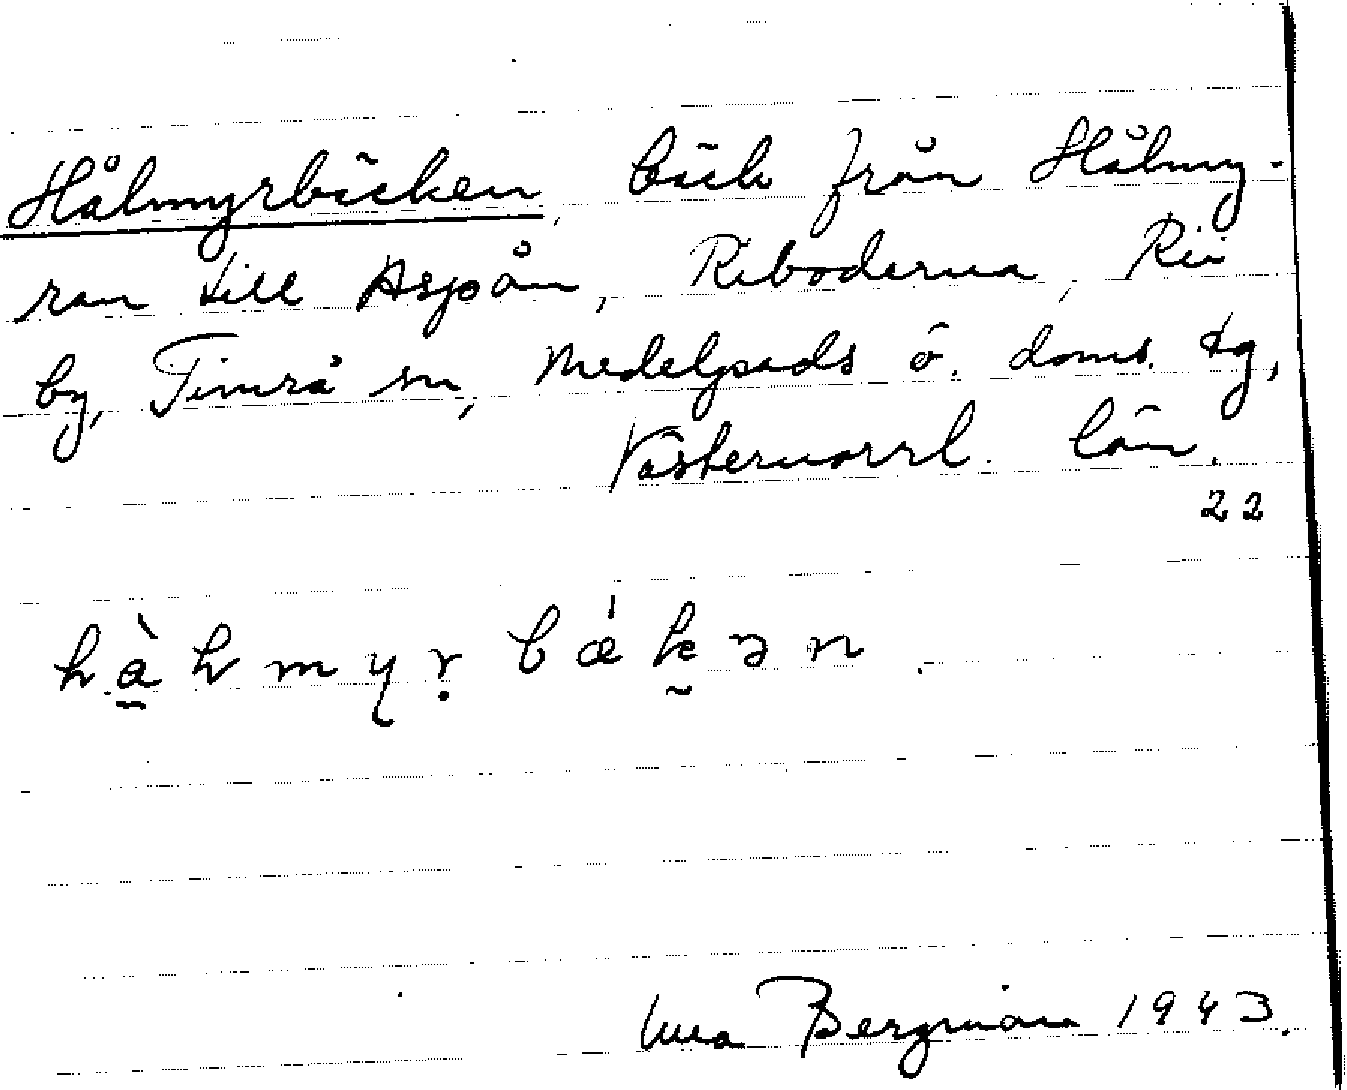 Hålmyrbäcken, bäck från Hålmy-
ran till Aspån, Ribodarna, Rii
by, Timrå sn, Medelpads ö. doms. tg,
Västernorrl. län.
22
Bergman 1943.